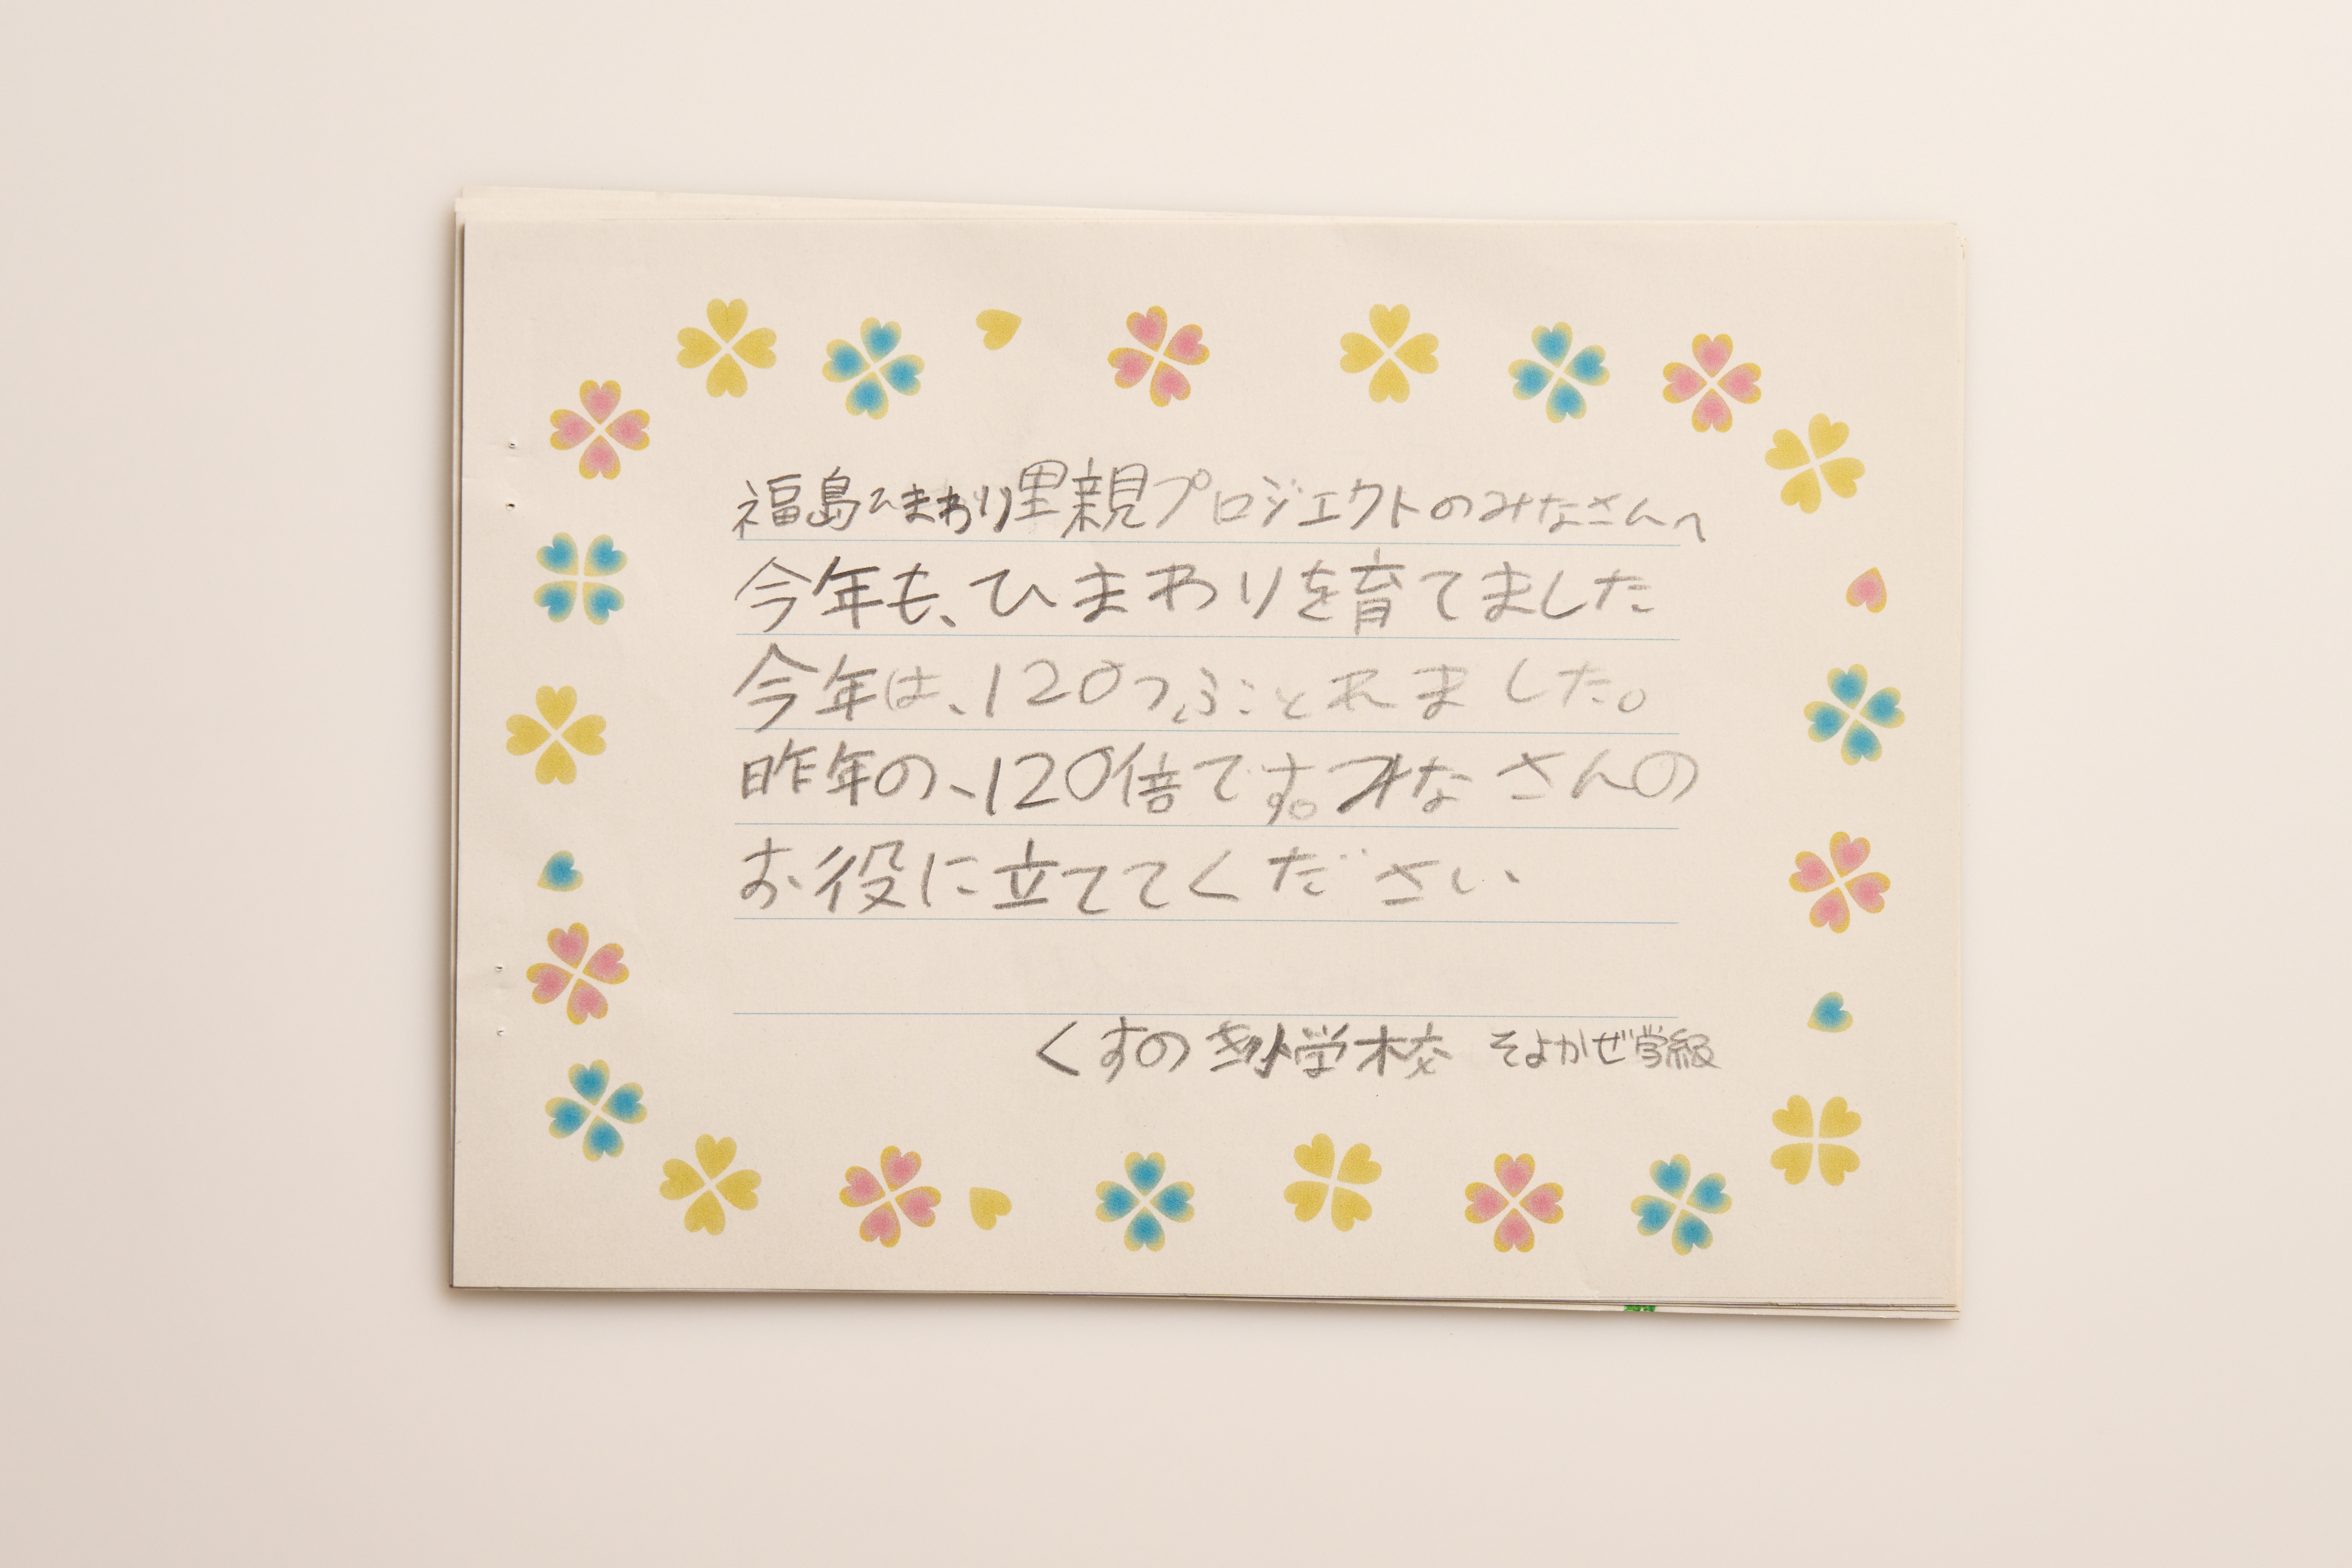 福島ひまわり里親プロジェクトのみなさんへ
今年も、ひまわりを育てました
今年は、120つぶとれました。
昨年の、120倍です。みなさんの
お役に立ててください
くすのき小学校 そよかぜ学級